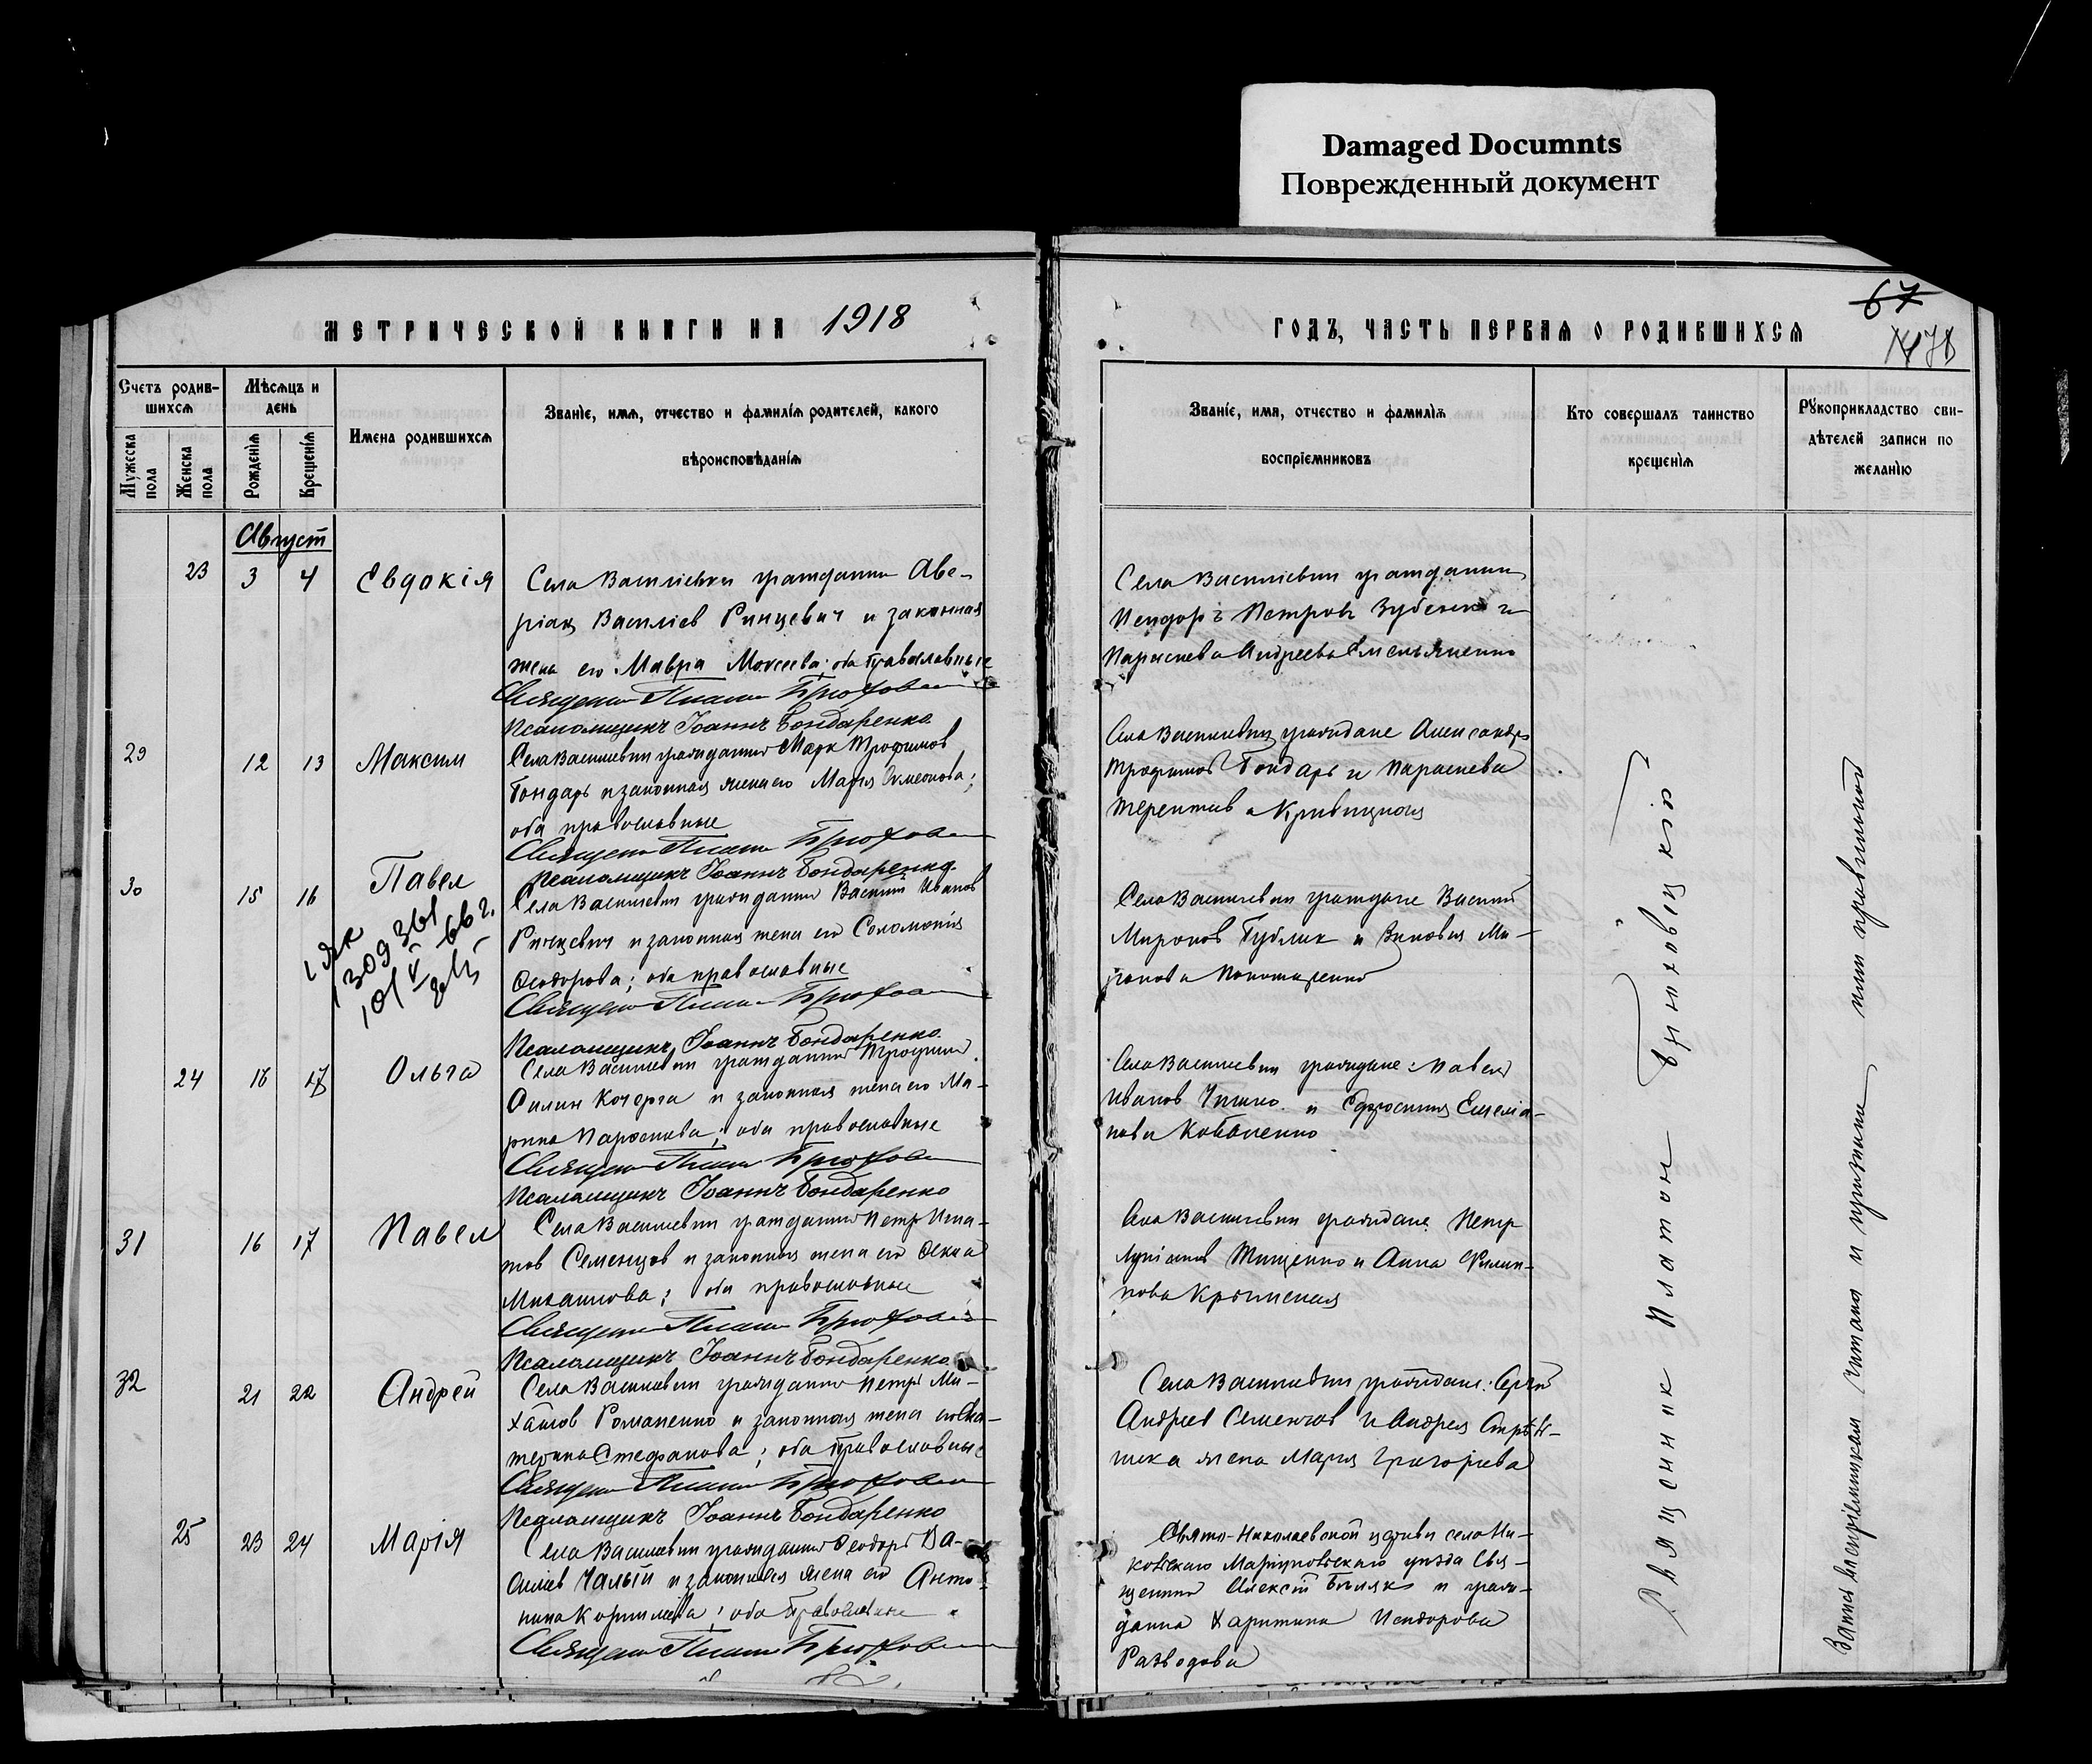 Damaged Documnts
Поврежденный документ
МЕТРИЧЕСКОЙ КНИГИ НА 1918
ГОДЪ, ЧАСТЬ ПЕРВАѦ О РОДИВШИХСѦ
67
Счетъ родив-
шихсѧ
Мужеска
пола
Женска
пола
Мѣсѧцъ и
день
Рожденїѧ
Крещенїѧ
Имена родившихсѧ
Званїе, имѧ, отчество и фамилїѧ родителей, какого
вѣроисповѣданїѧ
Званїе, имѧ, отчество и фамилїѧ
воспрїемниковъ
Кто совершалъ таинство
крещенїѧ
Рꙋкоприкладство сви-
дѣтелей записи по
желанїю
Август
23 3 4 Евдокія
Села Василіевки гражданин Аве-
ріан Василіев Ринцевич и законная
жена его Мавра Моисеева; оба православные
Священник Платон Брюховецкий
Псаломщикъ Іоаннъ Бондаренко
Села Василіевки гражданин
Исидоръ Петровъ Зубенко и
Параскева Андреева Емельяненко
29 12 13 Максим
Села Василіевки гражданин Марк Трофимов
Бондарь и законная жена его Мария Симеонова;
оба православные
Священник Платон Брюховецкий
Псаломщикъ Іоаннъ Бондаренко
Села Василіевки граждане Александр
Трофимов Бондарь и Параскева
Терентиева Кривицкая
30 15 16 Павел
Села Василіевки гражданин Василий Иванов
Ринцевич и законная жена его Соломония
Феодорова; оба православные
Священник Платон Брюховецкий
Псаломщикъ Іоаннъ Бондаренко
Села Василіевки граждане Василий
Миронов Гублик и Зиновия Ми-
ронова Пономаренко
24 16 17 Ольга
Села Василіевки гражданин Трофим
Филип Кочерга и законная жена его Ма-
рина; оба православные
Священник Платон Брюховецкий
Псаломщикъ Іоаннъ Бондаренко
Села Василіевки граждане: Павел
Иванов и Ефросиния Емелиа-
нова
31 16 17 Павел
Села Василіевки гражданин Петр Игна-
тов Семенцов и законная жена его Фекла
Михаилова; оба православные
Священник Платон Брюховецкий
Псаломщикъ Іоаннъ Бондаренко
Села Василіевки граждане Петр
Тищенко и Анна Филип-
пова
32 21 22 Андрей
Села Василіевки гражданин Петр Ми-
хаилов Романенко и законная жена его Ека-
терина Стефанова; оба православные
Священник Платон Брюховецкий
Псаломщикъ Іоаннъ Бондаренко
Села Василіевки граждане: Сергий
Андреев Семенцов и Андрея
жена Мария Григориева
25 23 24 Марія
Села Василіевки гражданин Феодор Ва-
силиев Чалый и законная жена его Анто-
нина; оба православные
Священник Платон Брюховецкий
Свято-Николаевской церкви села Ни-
кольскаго Мариупольскаго уезда Свя-
щенник Алексий и граж-
данка Харитина Исидорова
Разводова
Священник Платон Брюховецкий
Запись восприемникам читана и признана ими правильной